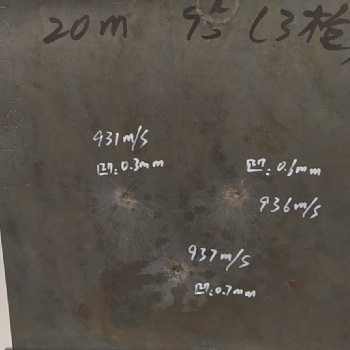 20m 95 (3枪)
931m/s
凹:0.3mm
凹:0.6mm
936m/s
937m/s
凹:0.7mm